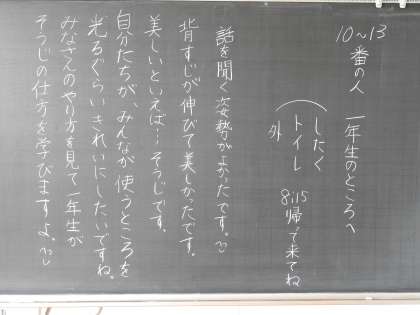 10〜13番の人 一年生のところへ
したく
トイレ
外
8:15 帰って来てね
話を聞く姿勢がよかったです。
背すじが伸びて美しかったです。
美しいといえば…そうじです。
自分たちが、みんなが使うところを
光るぐらいきれいにしたいですね。
みなさんのやり方を見て一年生が
そうじの仕方を学びますよ。